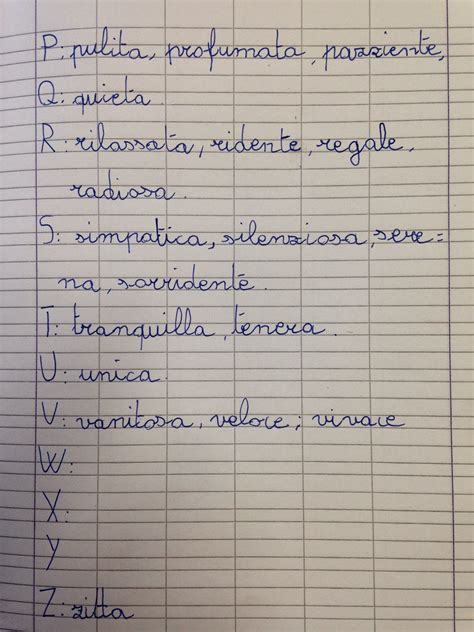 P: pulita, profumata, pazziente,
Q: quieta
R: rilassata, ridente, regale,
radiosa.
S: simpatica, silenziosa, sere=
na, sorridente.
T: tranquilla, tenera.
U: unica.
V: vanitosa, veloce; vivace
W:
X:
Y
Z: zitta